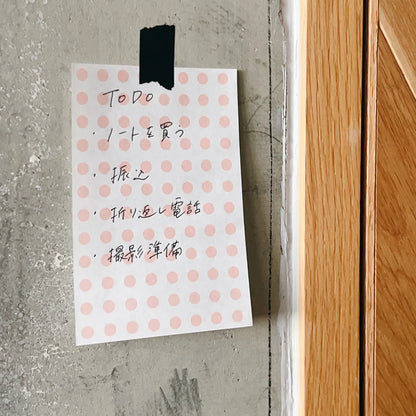 TODO
・ノートを買う
・振込
・折り返し電話
・撮影準備